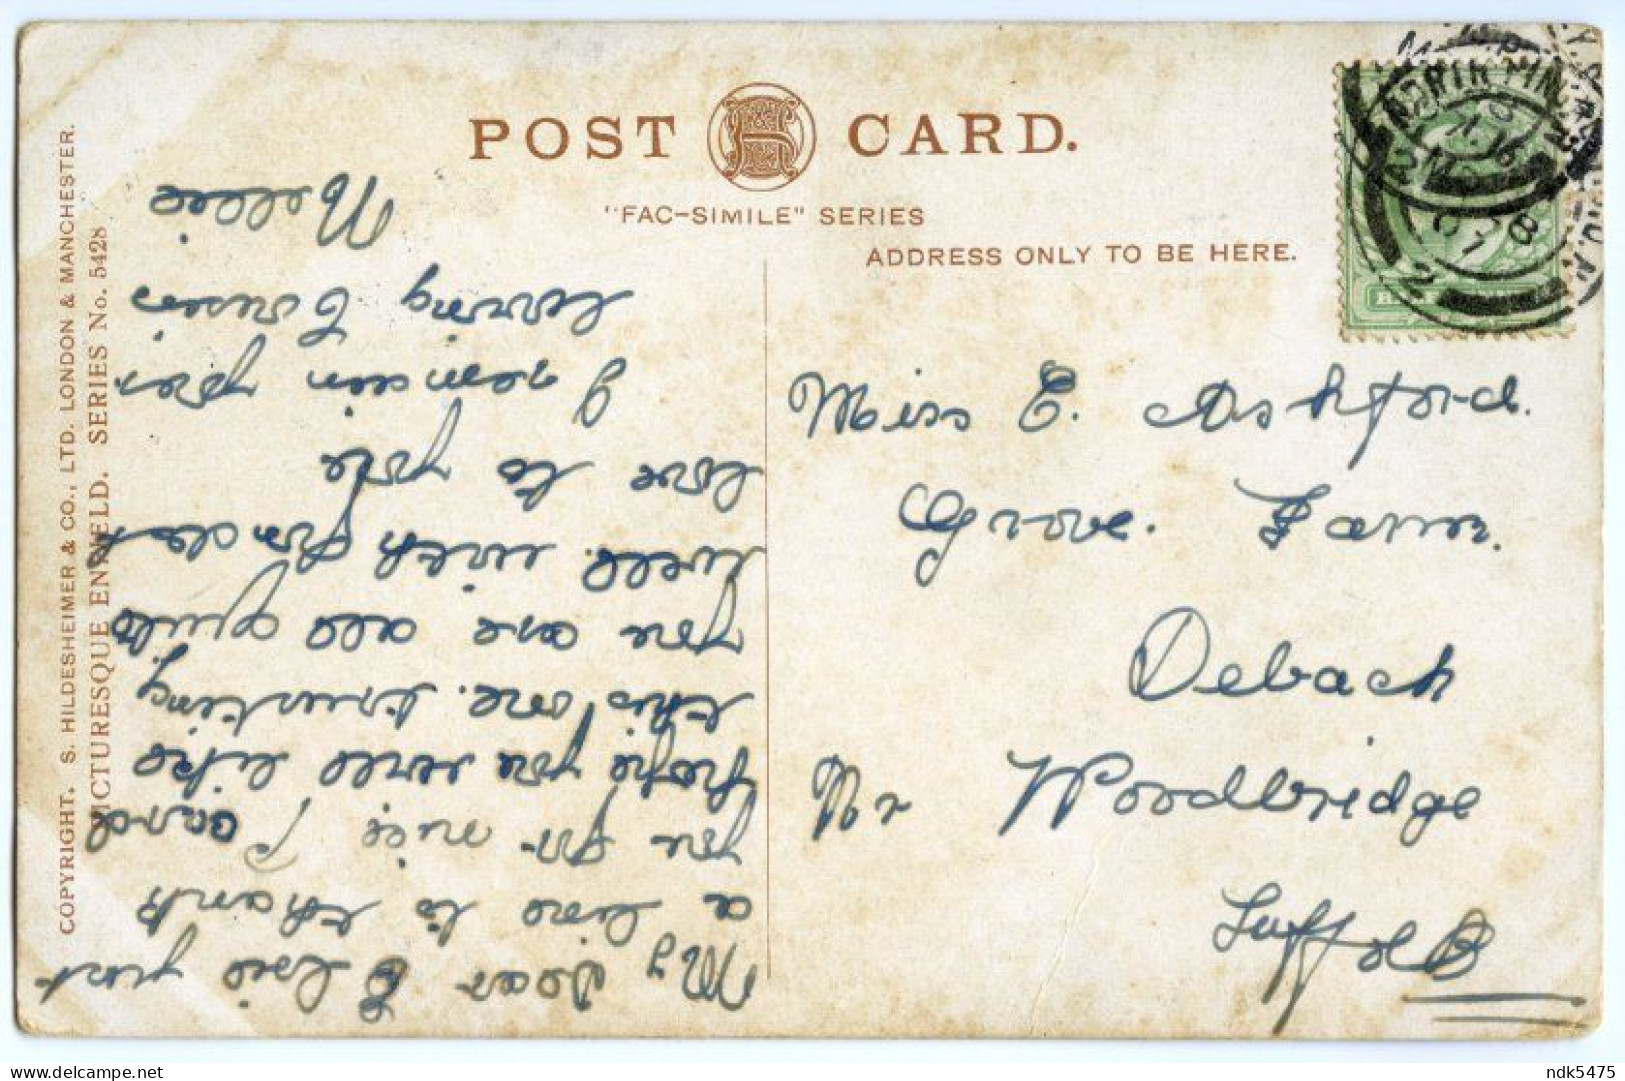 POST CARD.
"FAC-SIMILE" SERIES
ADDRESS ONLY TO BE HERE.
COPYRIGHT. S. HILDESHEIMER & CO., LTD. LONDON & MANCHESTER.
PICTURESQUE ENFIELD. SERIES No. 5428
My Dear Elsie just
a line to thank
you for nice P card
hope you will like
this one. trusting
you are all quite
well. with fondest
love to you
I remain your
loving Cousin
Nellie
Miss E. Ashford.
Grove. Farm.
Debach
Nr Woodbridge
Suffolk
ndk5475